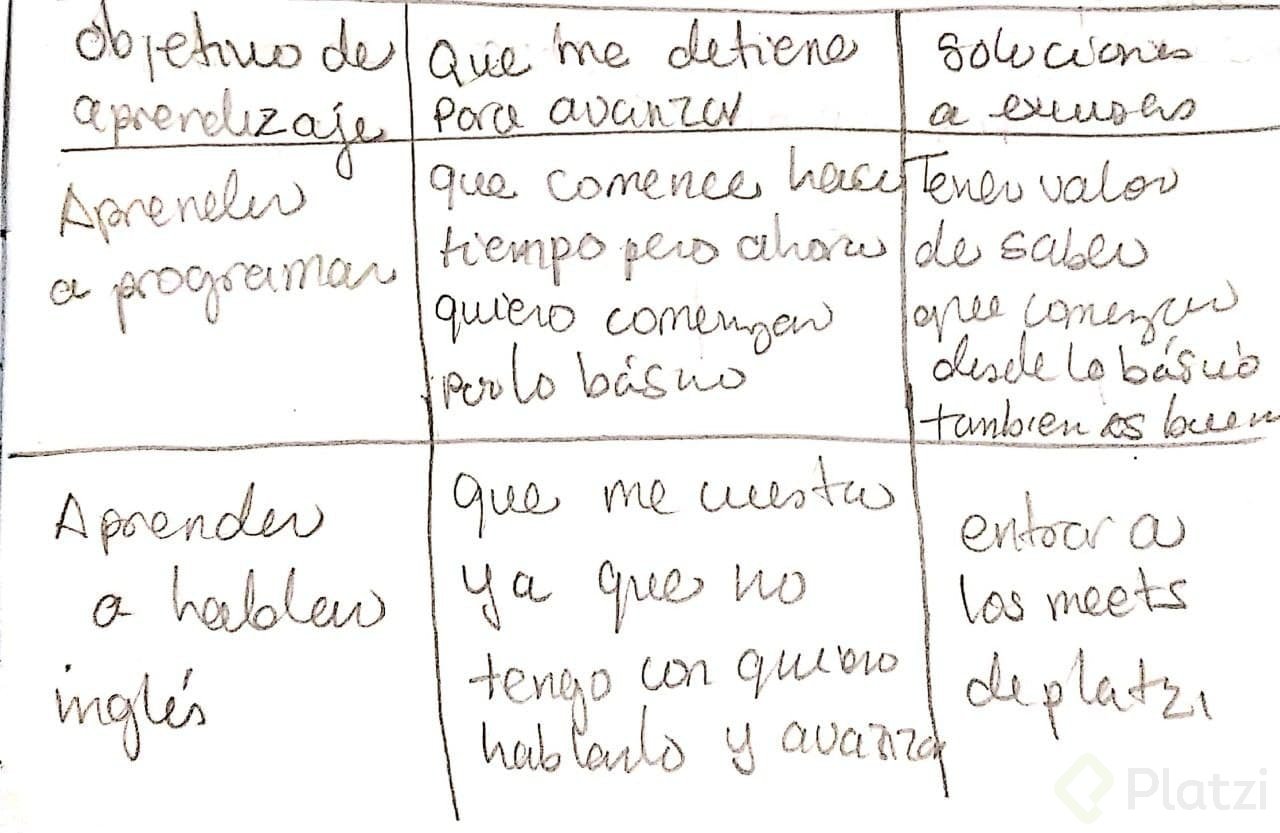 Objetivo de
aprendizaje
Que me detiene
para avanzar
soluciones
a excusas
Aprender
a programar
que comence hace
tiempo pero ahora
quiero comenzar
por lo básico
Tener valor
de saber
que comenzar
desde lo básico
tambien es buen
Aprender
a hablar
inglés
que me cuesta
ya que no
tengo con quien
hablarlo y avanzar
entrar a
los meets
de platzi
Platzi